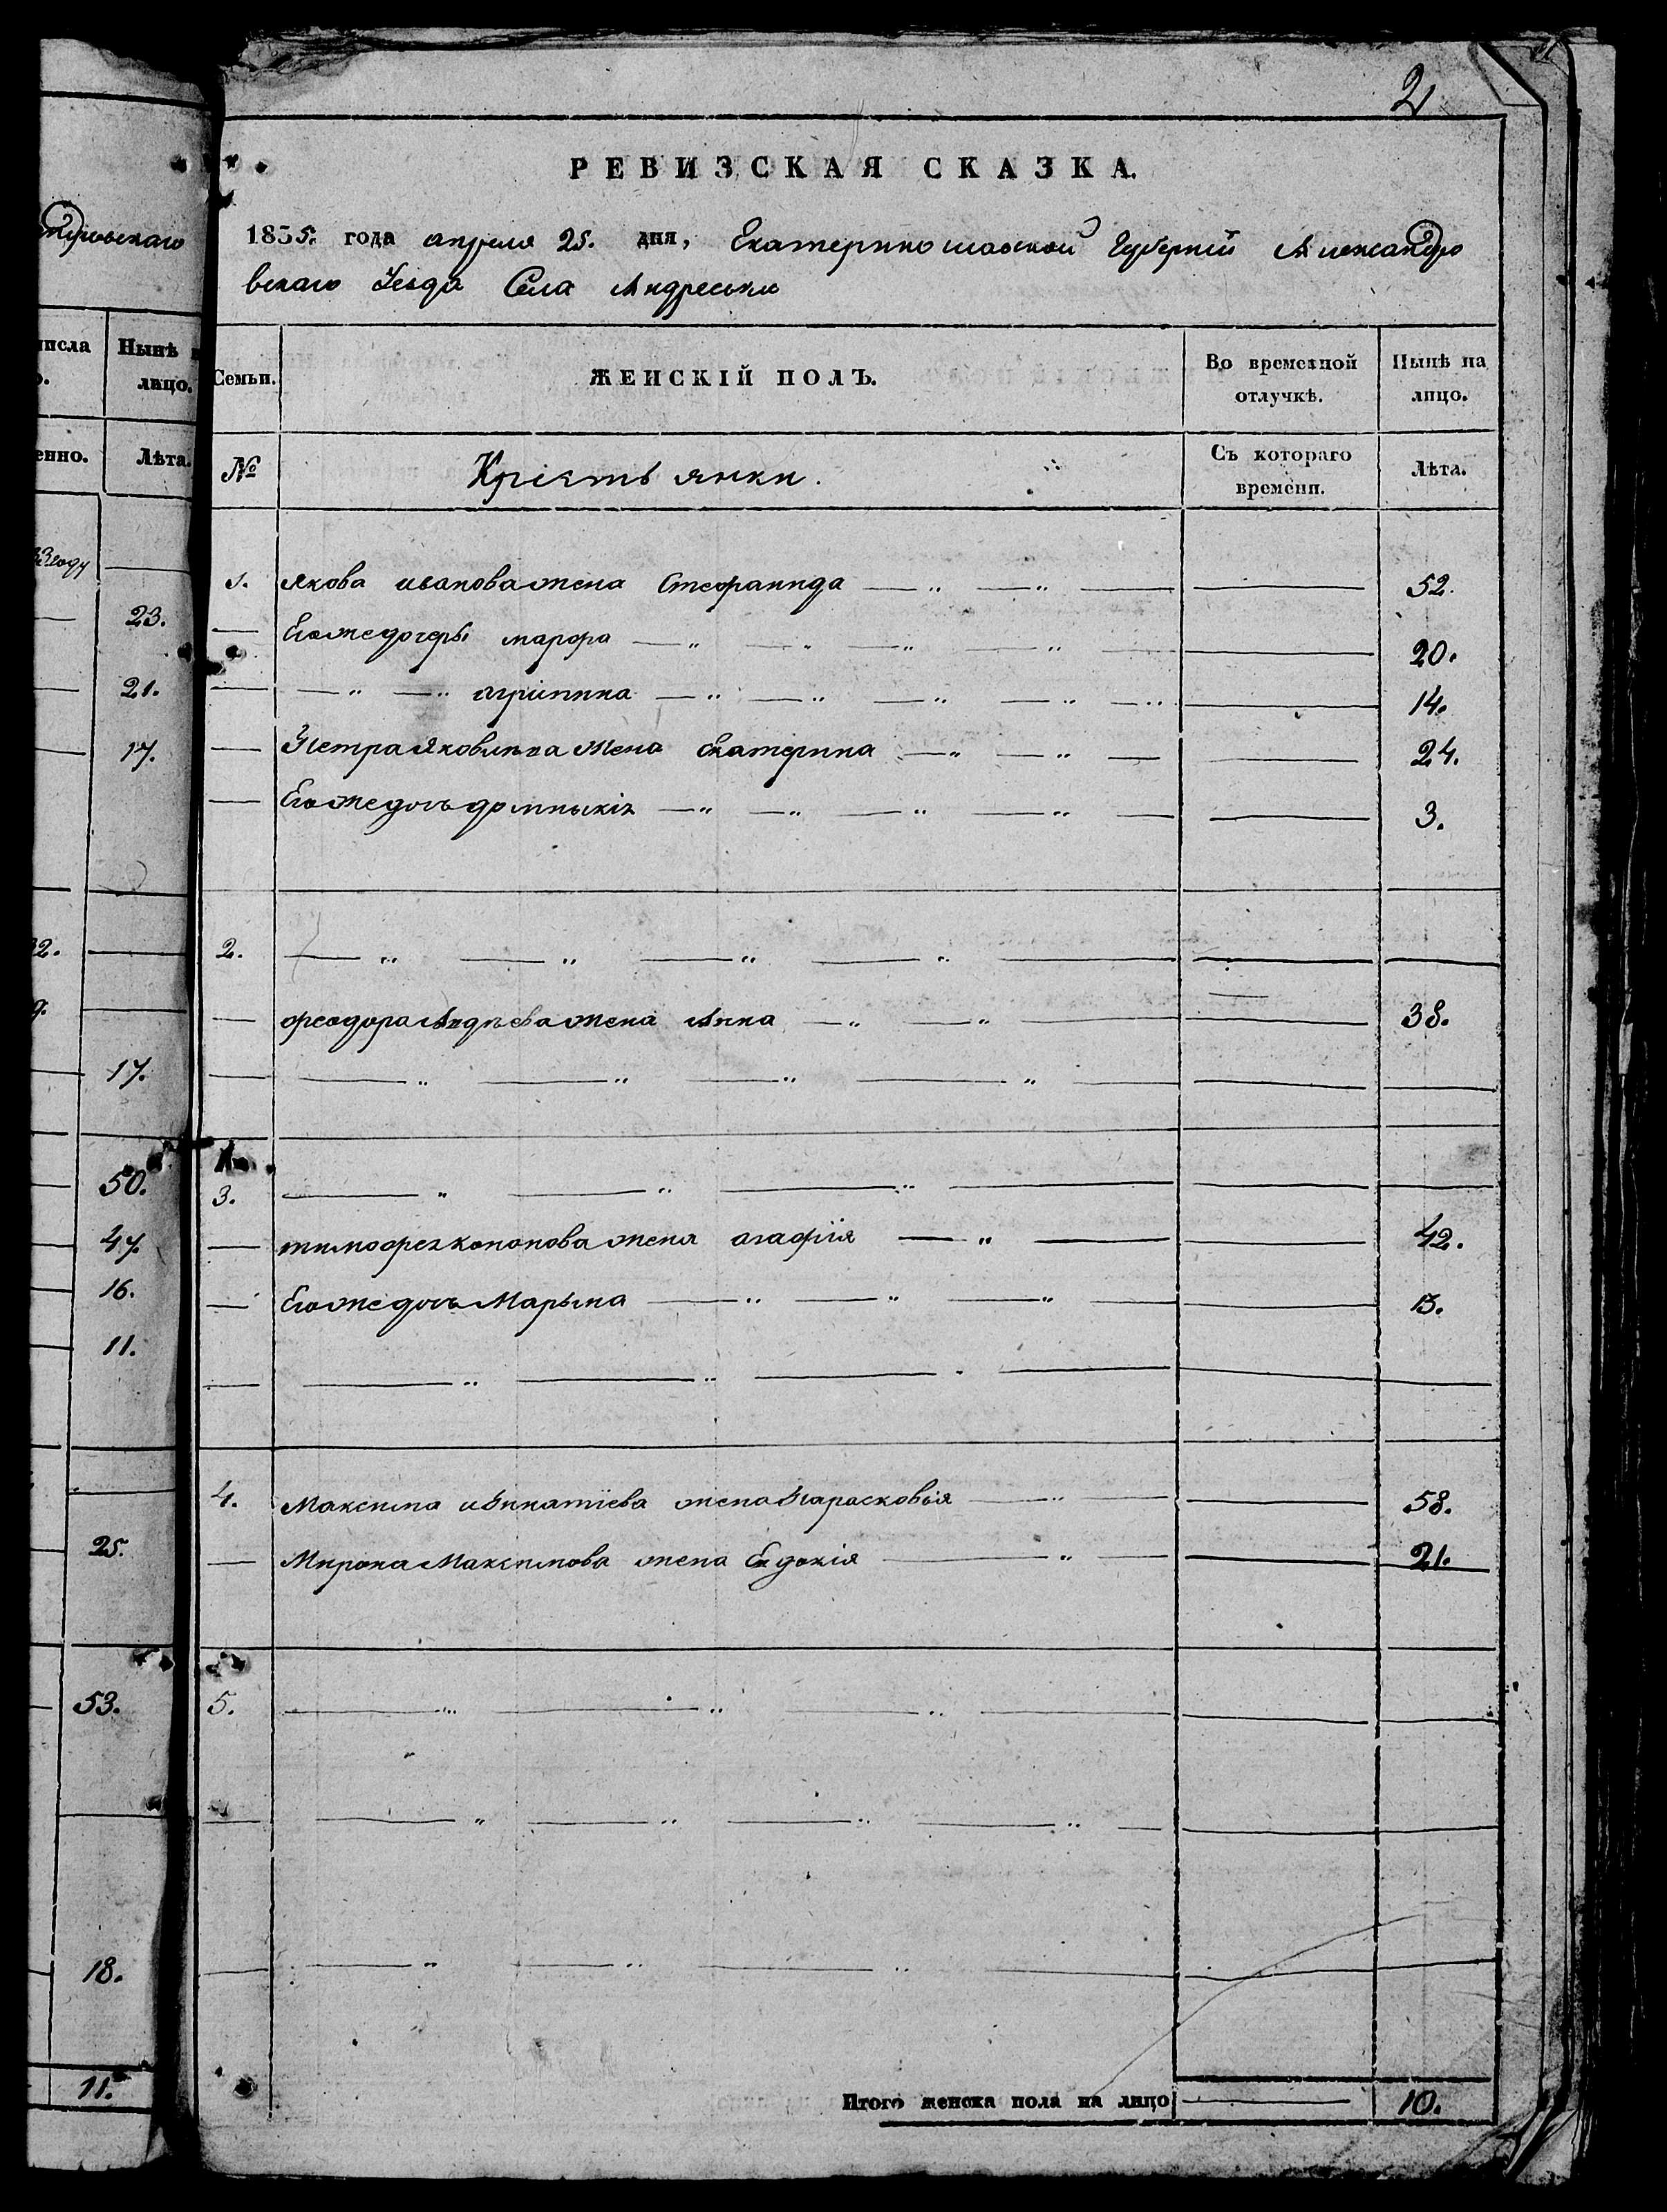 2
РЕВИЗСКАЯ СКАЗКА.
1835. года апреля 25. дня, Екатеринославской Губерніи Александро
вскаго Уезда Села Андреевки
Семьи. ЖЕНСКІЙ ПОЛЪ. Во временной отлучкѣ. Нынѣ на лицо.
№ Крістьянки. Съ котораго времени. Лѣта.
1. Якова иванова жена Стефанида 52.
Егоже дочеры марфра 20.
агрипина 14.
Петра Яковлева Жена Екатерина 24.
Егоже дочь домныкія 3.
2.
феодора Андрева жена Анна 38.
3.
тимофея кононова жена агафія 42.
Егоже дочь Марына 13.
4. Максима игнатіева жена Парасковья 58.
Мирона Максимова жена Евдокія 21.
5.
Итого женска пола на лицо 10.
Нынѣ
лицо.
енно. Лѣта.
33 году
23.
21.
17.
17.
50.
47.
16.
11.
25.
53.
18.
11.